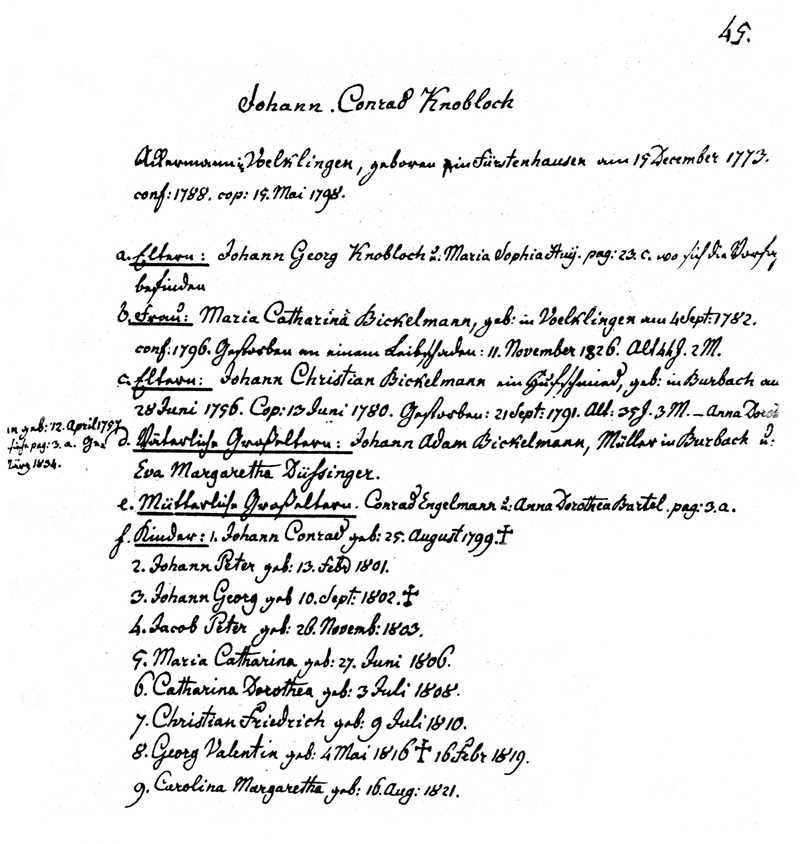 45.
Johann Conrad Knobloch
Ackermann i: Voelklingen, geboren in Fürstenhausen am 15 December 1773.
conf: 1788. cop: 15. Mai 1798.
a. Eltern: Johann Georg Knobloch u. Maria Sophia Huÿ. pag: 23. c. wo sich die
befinden
b. Frau: Maria Catharina Bickelmann, geb: in Voelklingen am 4 Sept: 1782.
conf: 1796. Gestorben an einem Leibschaden: 11. November 1826. Alt 44 J. 2 M.
c. Eltern: Johann Christian Bickelmann ein Hufschmied, geb: in Burbach am
28 Juni 1756. Cop: 13 Juni 1780. Gestorben: 21 Sept: 1791. Alt: 35 J. 3 M. – Anna
in geb: 12. April 1757
siehe pag: 3. a.
März 1834.
d. Väterliche Großeltern: Johann Adam Bickelmann, Müller in Burbach u:
Eva Margaretha Düssinger.
e. Mütterliche Großeltern. Conrad Engelmann u: Anna Dorothea Bartel. pag: 3. a.
f. Kinder: 1. Johann Conrad geb: 25. August 1799. ✝
2. Johann Peter geb: 13. Febr 1801.
3. Johann Georg geb 10. Sept: 1802. ✝
4. Jacob Peter geb: 26. Novemb: 1803.
5. Maria Catharina geb: 27. Juni 1806.
6. Catharina Dorothea geb: 3 Juli 1808.
7. Christian Friedrich geb: 9 Juli 1810.
8. Georg Valentin geb: 4 Mai 1816 ✝ 16 Febr 1819.
9. Carolina Margaretha geb: 16. Aug: 1821.